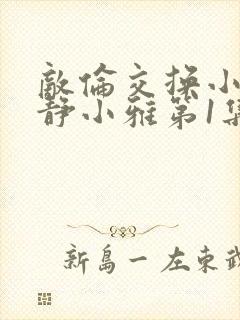 敵倫交换小
静小雅第1集
新島一 左東武